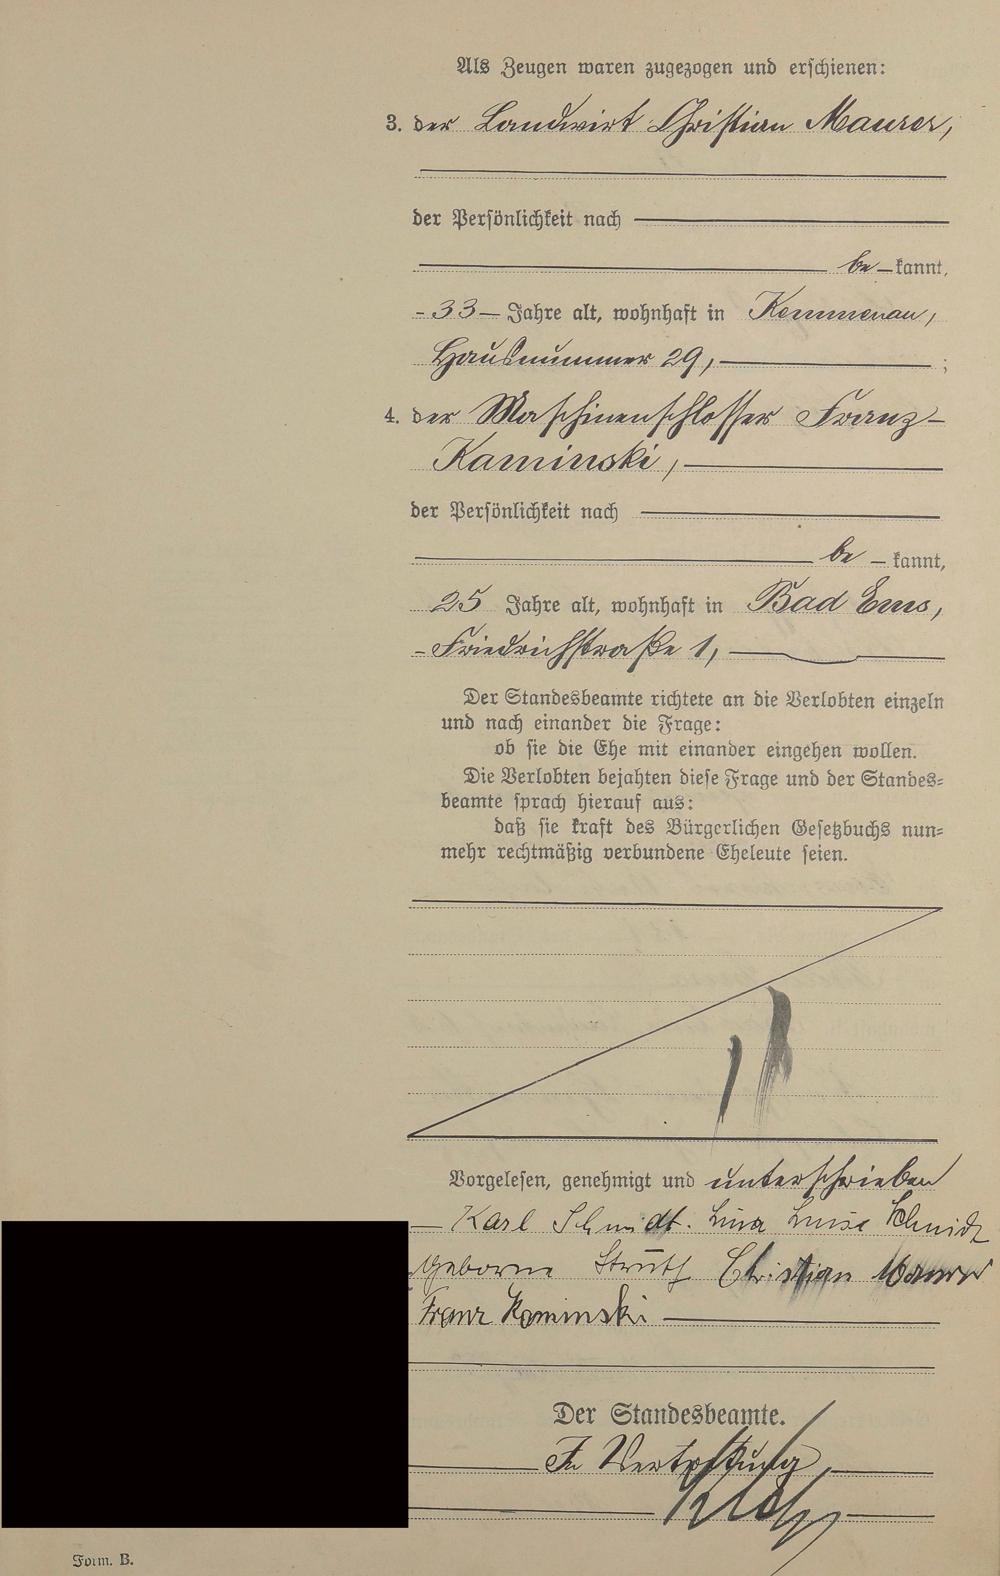 Als Zeugen waren zugezogen und erschienen:
3. der Landwirt Christian Maurer,
der Persönlichkeit nach
be – kannt,
- 33 – Jahre alt, wohnhaft in Kemmenau,
Hausnummer 29, ;
4. der Maschinenschlosser Franz –
Kaminski,
der Persönlichkeit nach
be – kannt,
25 Jahre alt, wohnhaft in Bad Ems,
- Friedrichstraße 1,
Der Standesbeamte richtete an die Verlobten einzeln
und nach einander die Frage:
ob sie die Ehe mit einander eingehen wollen.
Die Verlobten bejahten diese Frage und der Standes=
beamte sprach hierauf aus:
daß sie kraft des Bürgerlichen Gesetzbuchs nun=
mehr rechtmäßig verbundene Eheleute seien.
Vorgelesen, genehmigt und unterschrieben
Karl Schmidt. Lina Luise Schmidt
geborne Struth Christian Maurer
Franz Kaminski
Der Standesbeamte.
In Vertretung
Form. B.